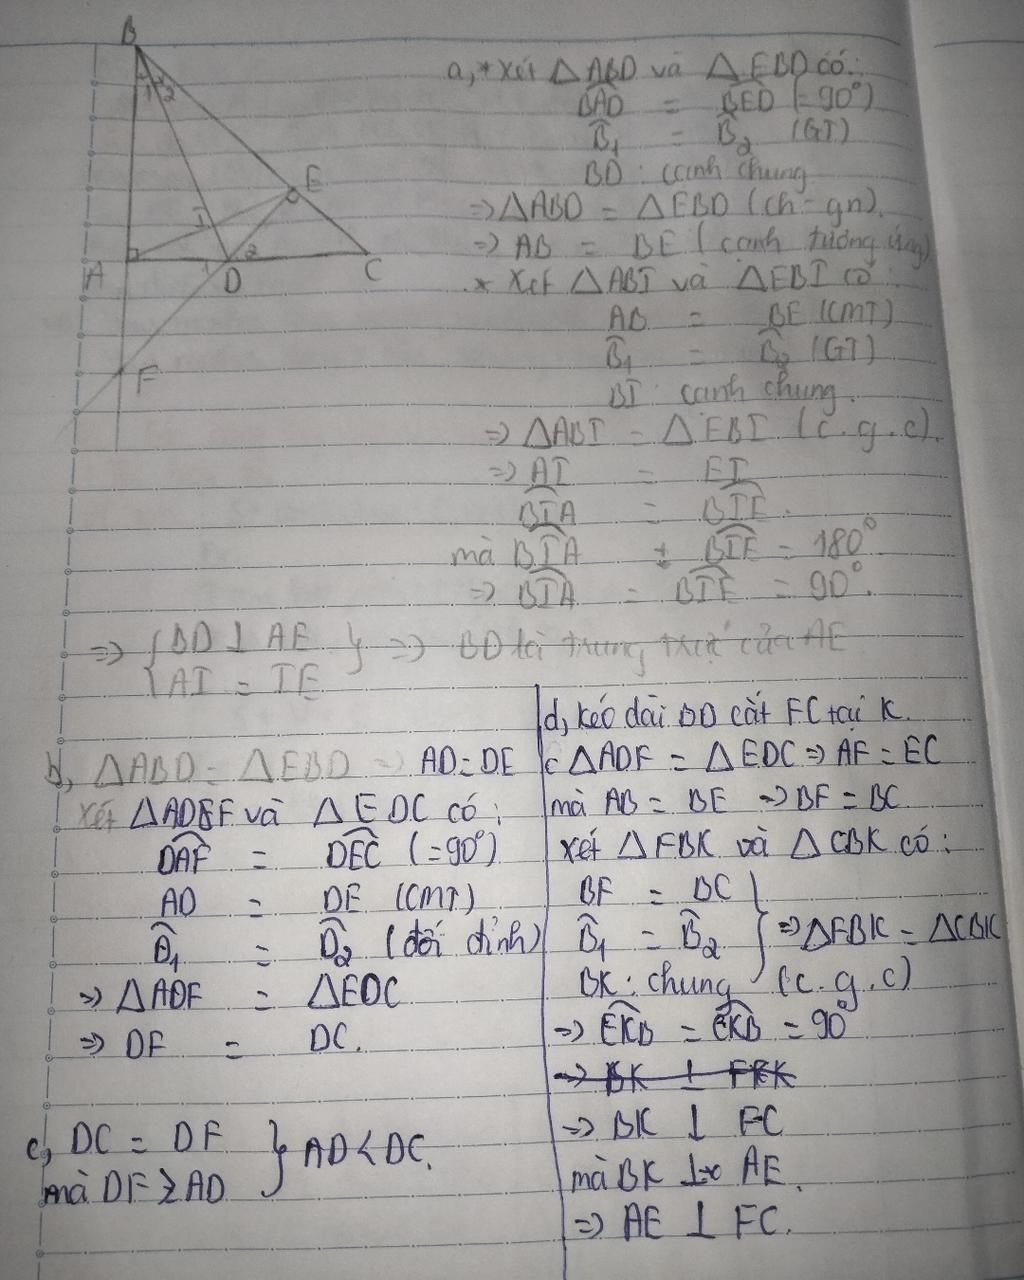 B
1 2
E
I
A
1
D
2
C
F
a, * xét △ABD và △EBD có:
BAD = BED (= 90°)
B̂₁ = B̂₂ (GT)
BD : cạnh chung
=> △ABD = △EBD (ch - gn).
=> AB = BE (cạnh tương ứng)
* Xét △ABI và △EBI có:
AB = BE (CMT)
B̂₁ = B̂₂ (GT)
BI : cạnh chung.
=> △ABI = △EBI (c.g.c).
=> AI = EI
BIA = BIE.
mà BIA + BIE = 180°
=> BIA = BIE = 90°.
=> { BD ⊥ AE
AI = IE } => BD là trung trực của AE
b, △ABD = △EBD => AD = DE
Xét △ADF và △EDC có:
DAF = DEC (= 90°)
AD = DE (CMT)
D̂₁ = D̂₂ (đối đỉnh)
=> △ADF = △EDC
=> DF = DC.
c, DC = DF
mà DF > AD } AD < DC.
d, kéo dài BD cắt FC tại K.
△ADF = △EDC => AF = EC
mà AB = BE => BF = BC
xét △FBK và △CBK có:
BF = BC
B̂₁ = B̂₂ } => △FBK = △CBK
BK : chung (c.g.c)
=> FKB = CKB = 90°
=> BK ⊥
=> BK ⊥ FC
mà BK ⊥ AE.
=> AE ⊥ FC.